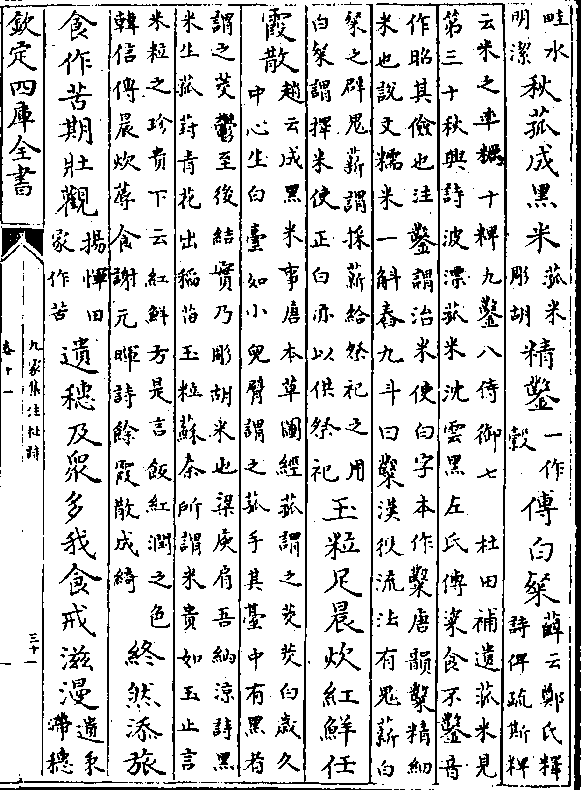 畦水明潔秋菰成黑米菰米彫胡精鑿一作榖傳白粲薛云鄭氏釋詩俾疏斯粺
云米之率糲十粺九鑿八侍御七 杜田補遺菰米見
第三十秋興詩波漂菰米沈雲黑左氏傳粢食不鑿音
作昭其儉也注鑿謂治米使白字本作糳唐韻糳精細
米也說文糯米一斛舂九斗曰糳漢役流法有鬼薪白
粲之辟鬼薪謂採薪給祭祀之用白粲謂擇米使正白亦以供祭祀玉粒足晨炊紅鮮任
霞散趙云成黑米事唐本草圖經菰謂之茭茭白歲久中心生白臺如小兒臂謂之菰手其臺中有黑者
謂之茭鬱至後結實乃彫胡米也梁庾肩吾納涼詩黑
米生菰葑青花出稻苗玉粒蘇秦所謂米貴如玉止言
米粒之珍貴下云紅鮮方是言飯紅潤之色韓信傳晨炊蓐食謝元暉詩餘霞散成綺終然添旅
食作苦期壯觀楊惲田家作苦遺穗及眾多我食戒滋漫遺秉滯穗
欽定四庫全書
九家集注杜詩
卷十一
三十一